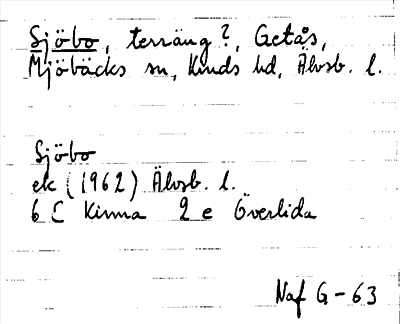 Sjöbo, terräng?, Getås,
Mjöbäcks sn, Kinds hd, Älvsb. l.
Sjöbo
ek (1962) Älvsb. l.
6 C Kinna 2 e Överlida
Naf G-63